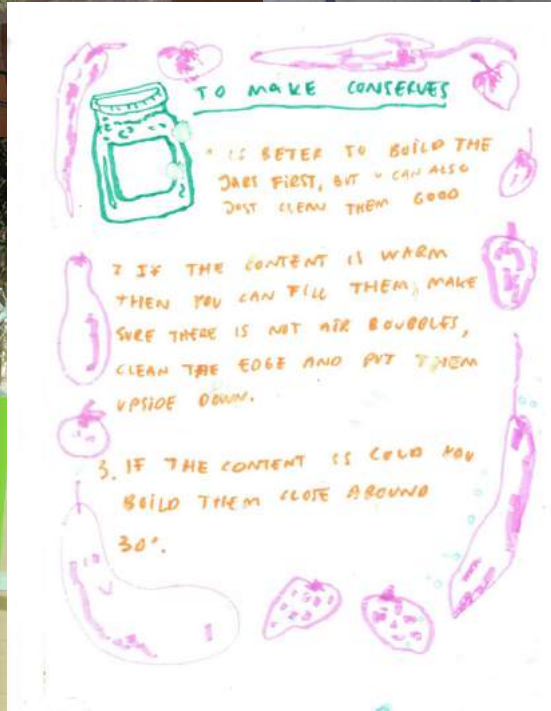 TO MAKE CONSERVES
1 IS BETER TO BOILD THE
JARS FIRST, BUT U CAN ALSO
JUST CLEAN THEM GOOD
2 IF THE CONTENT IS WARM
THEN YOU CAN FILL THEM, MAKE
SURE THERE IS NOT AIR BOUBBLES,
CLEAN THE EDGE AND PUT THEM
UPSIDE DOWN.
3. IF THE CONTENT IS COLD YOU
BOILD THEM CLOSE AROUND
30".